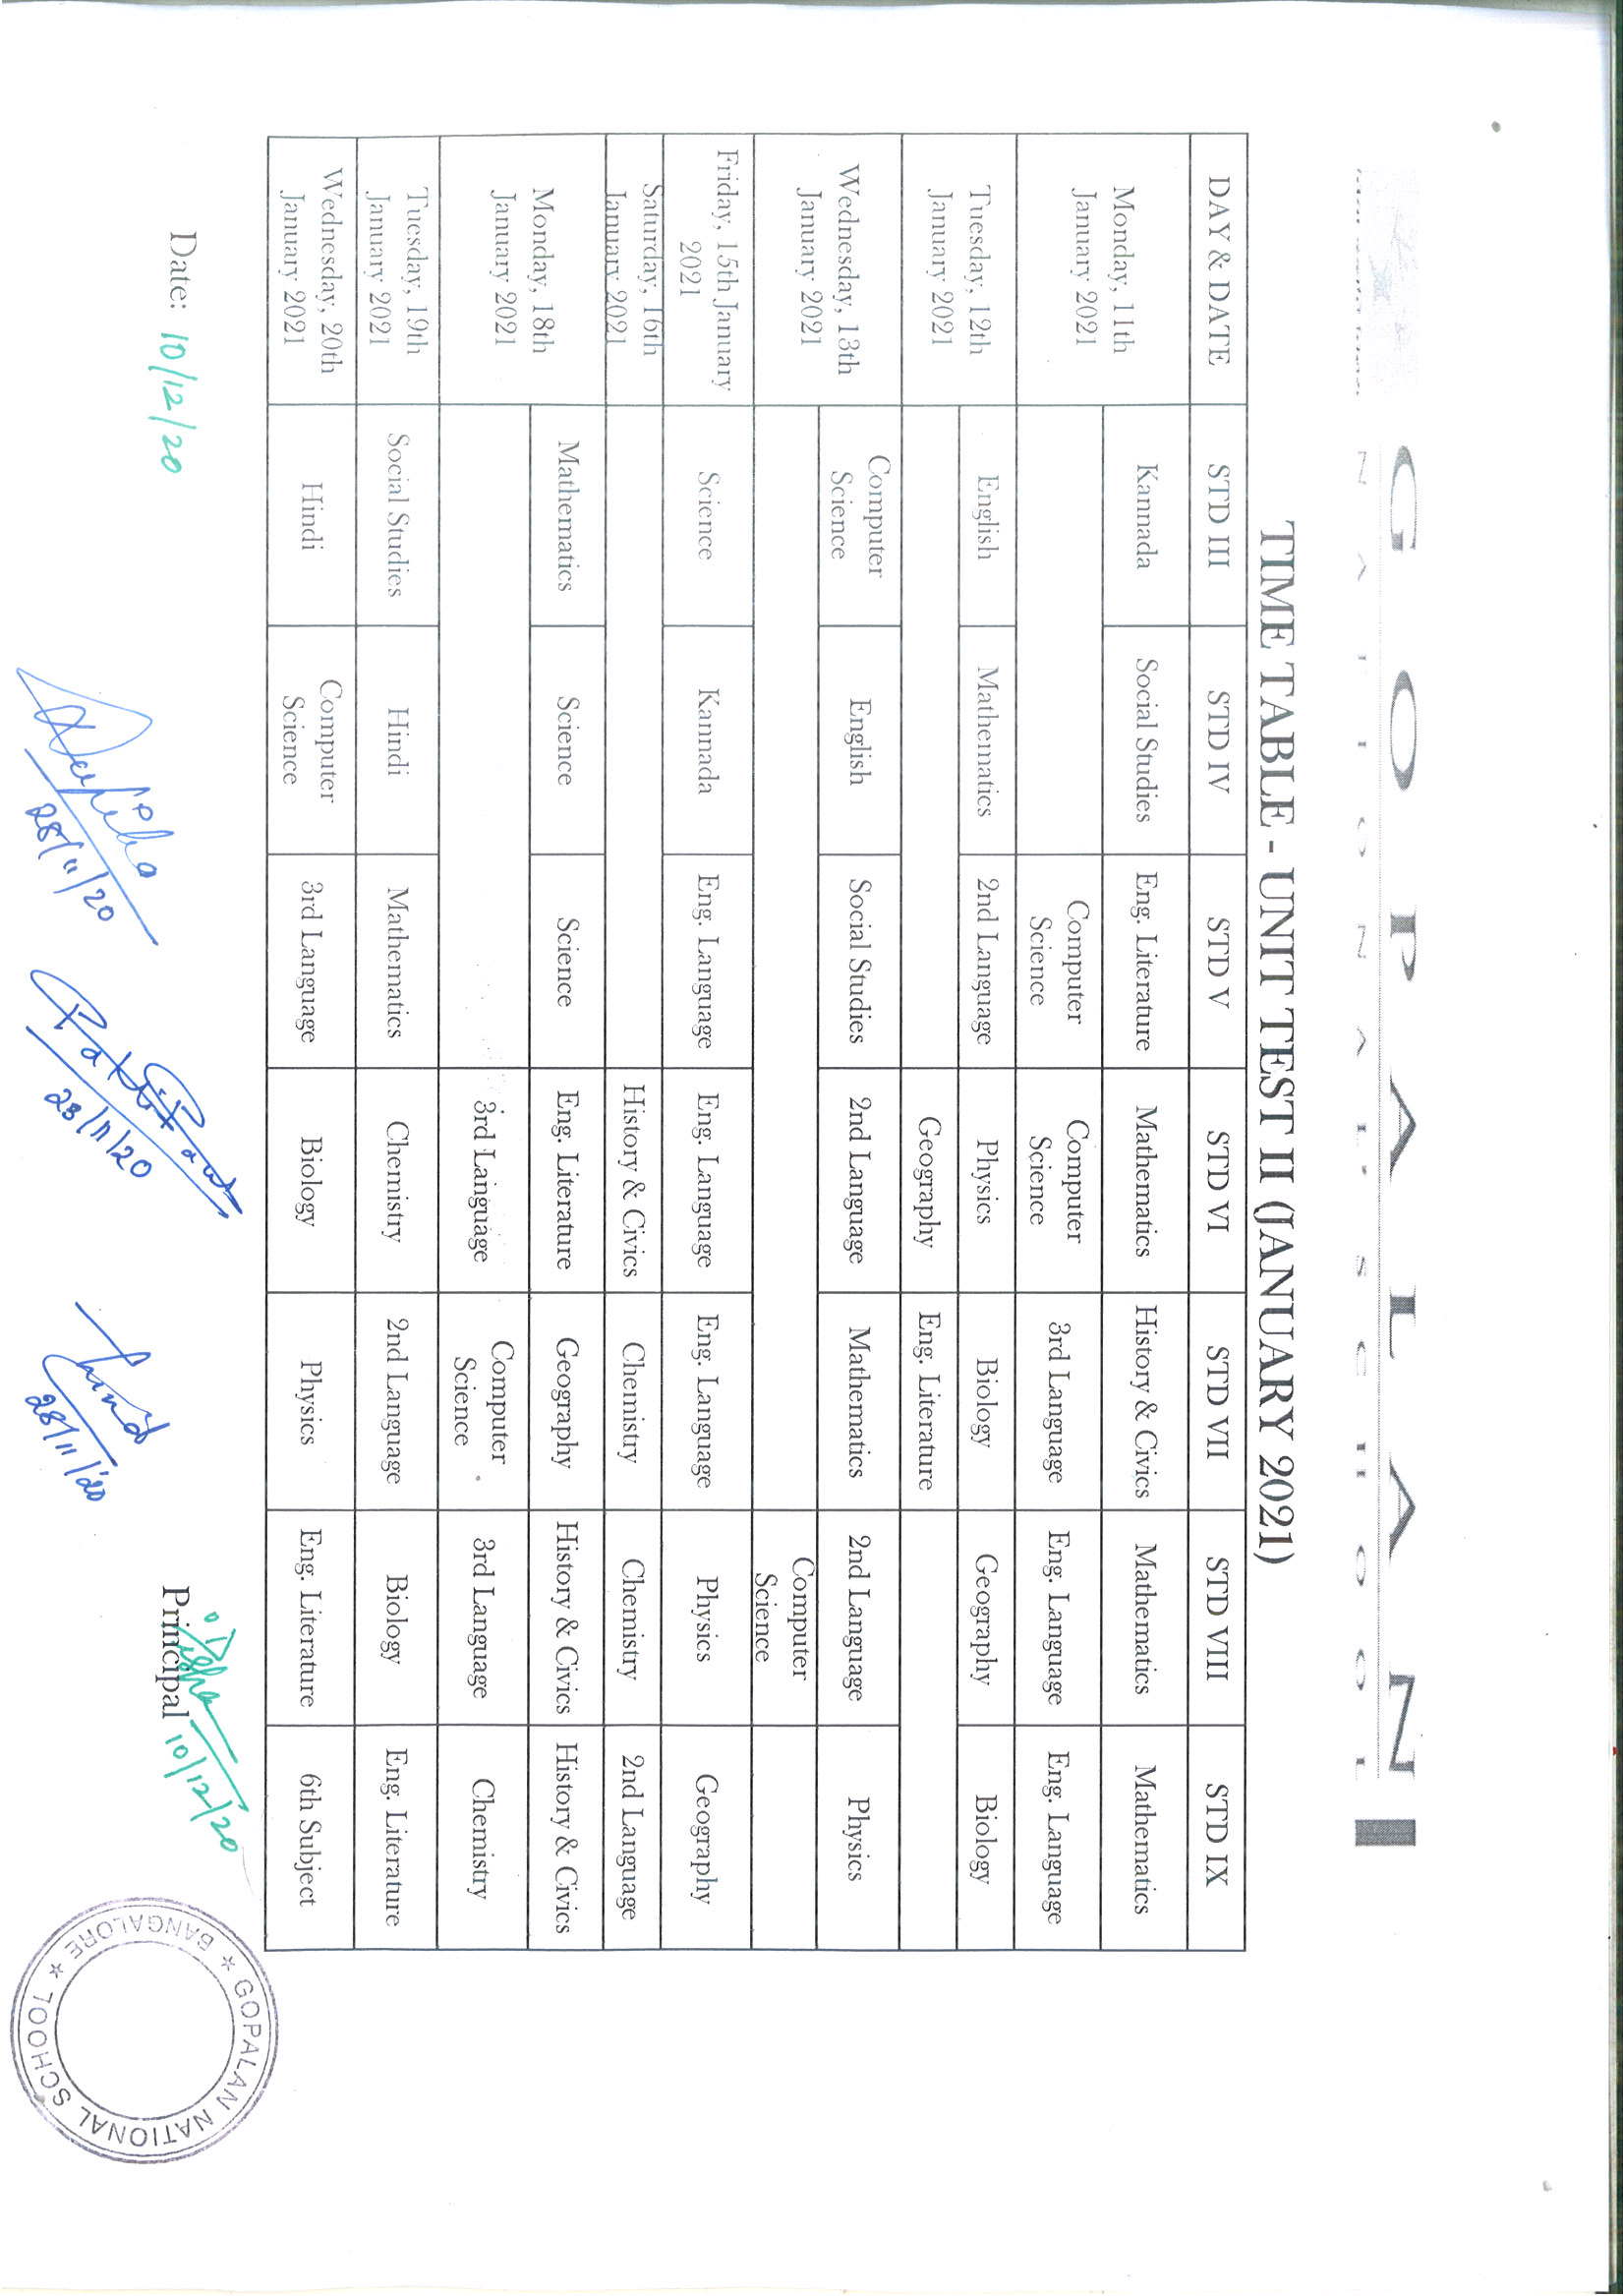 GOPALAN
NATIONAL SCHOOL
TIME TABLE - UNIT TEST II (JANUARY 2021)
DAY & DATE STD III STD IV STD V STD VI STD VII STD VIII STD IX
Monday, 11th
January 2021
Kannada Social Studies Eng. Literature Mathematics History & Civics Mathematics Mathematics
Computer
Science
Computer
Science
3rd Language Eng. Language Eng. Language
Tuesday, 12th
January 2021
English Mathematics 2nd Language Physics Biology Geography Biology
Geography Eng. Literature
Wednesday, 13th
January 2021
Computer
Science
English Social Studies 2nd Language Mathematics 2nd Language Physics
Computer
Science
Friday, 15th January
2021
Science Kannada Eng. Language Eng. Language Eng. Language Physics Geography
Saturday, 16th
January 2021
History & Civics Chemistry Chemistry 2nd Language
Monday, 18th
January 2021
Mathematics Science Science Eng. Literature Geography History & Civics History & Civics
3rd Language
Computer
Science
3rd Language Chemistry
Tuesday, 19th
January 2021
Social Studies Hindi Mathematics Chemistry 2nd Language Biology Eng. Literature
Wednesday, 20th
January 2021
Hindi
Computer
Science
3rd Language Biology Physics Eng. Literature 6th Subject
Date: 10/12/20
Principal 10/12/20
28/11/20
28/11/20
28/11/20
GOPALAN NATIONAL SCHOOL * BANGALORE *